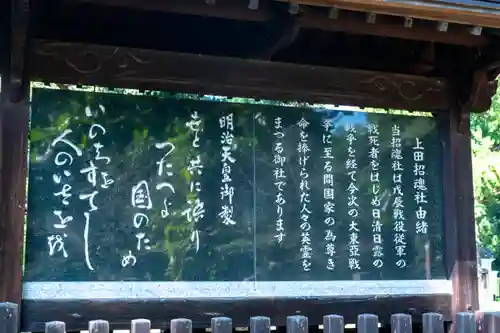 上田招魂社由緒
当招魂社は戊辰戦役従軍の
戦死者をはじめ日清日露の
戦争を経て今次の大東亞戦
争に至る間国家の為尊き
命を捧げられた人々の英霊を
まつる御社であります
明治天皇御製
世と共に語り
つたへよ
国のため
いのちをすてし
人のいさをを